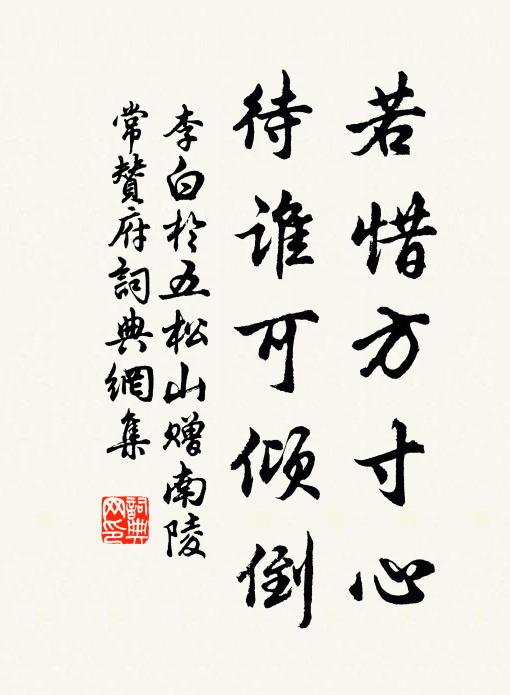 若惜方寸心
待谁可倾倒
李白於五松山赠南陵
常贊府詞典網集
詞典
网印